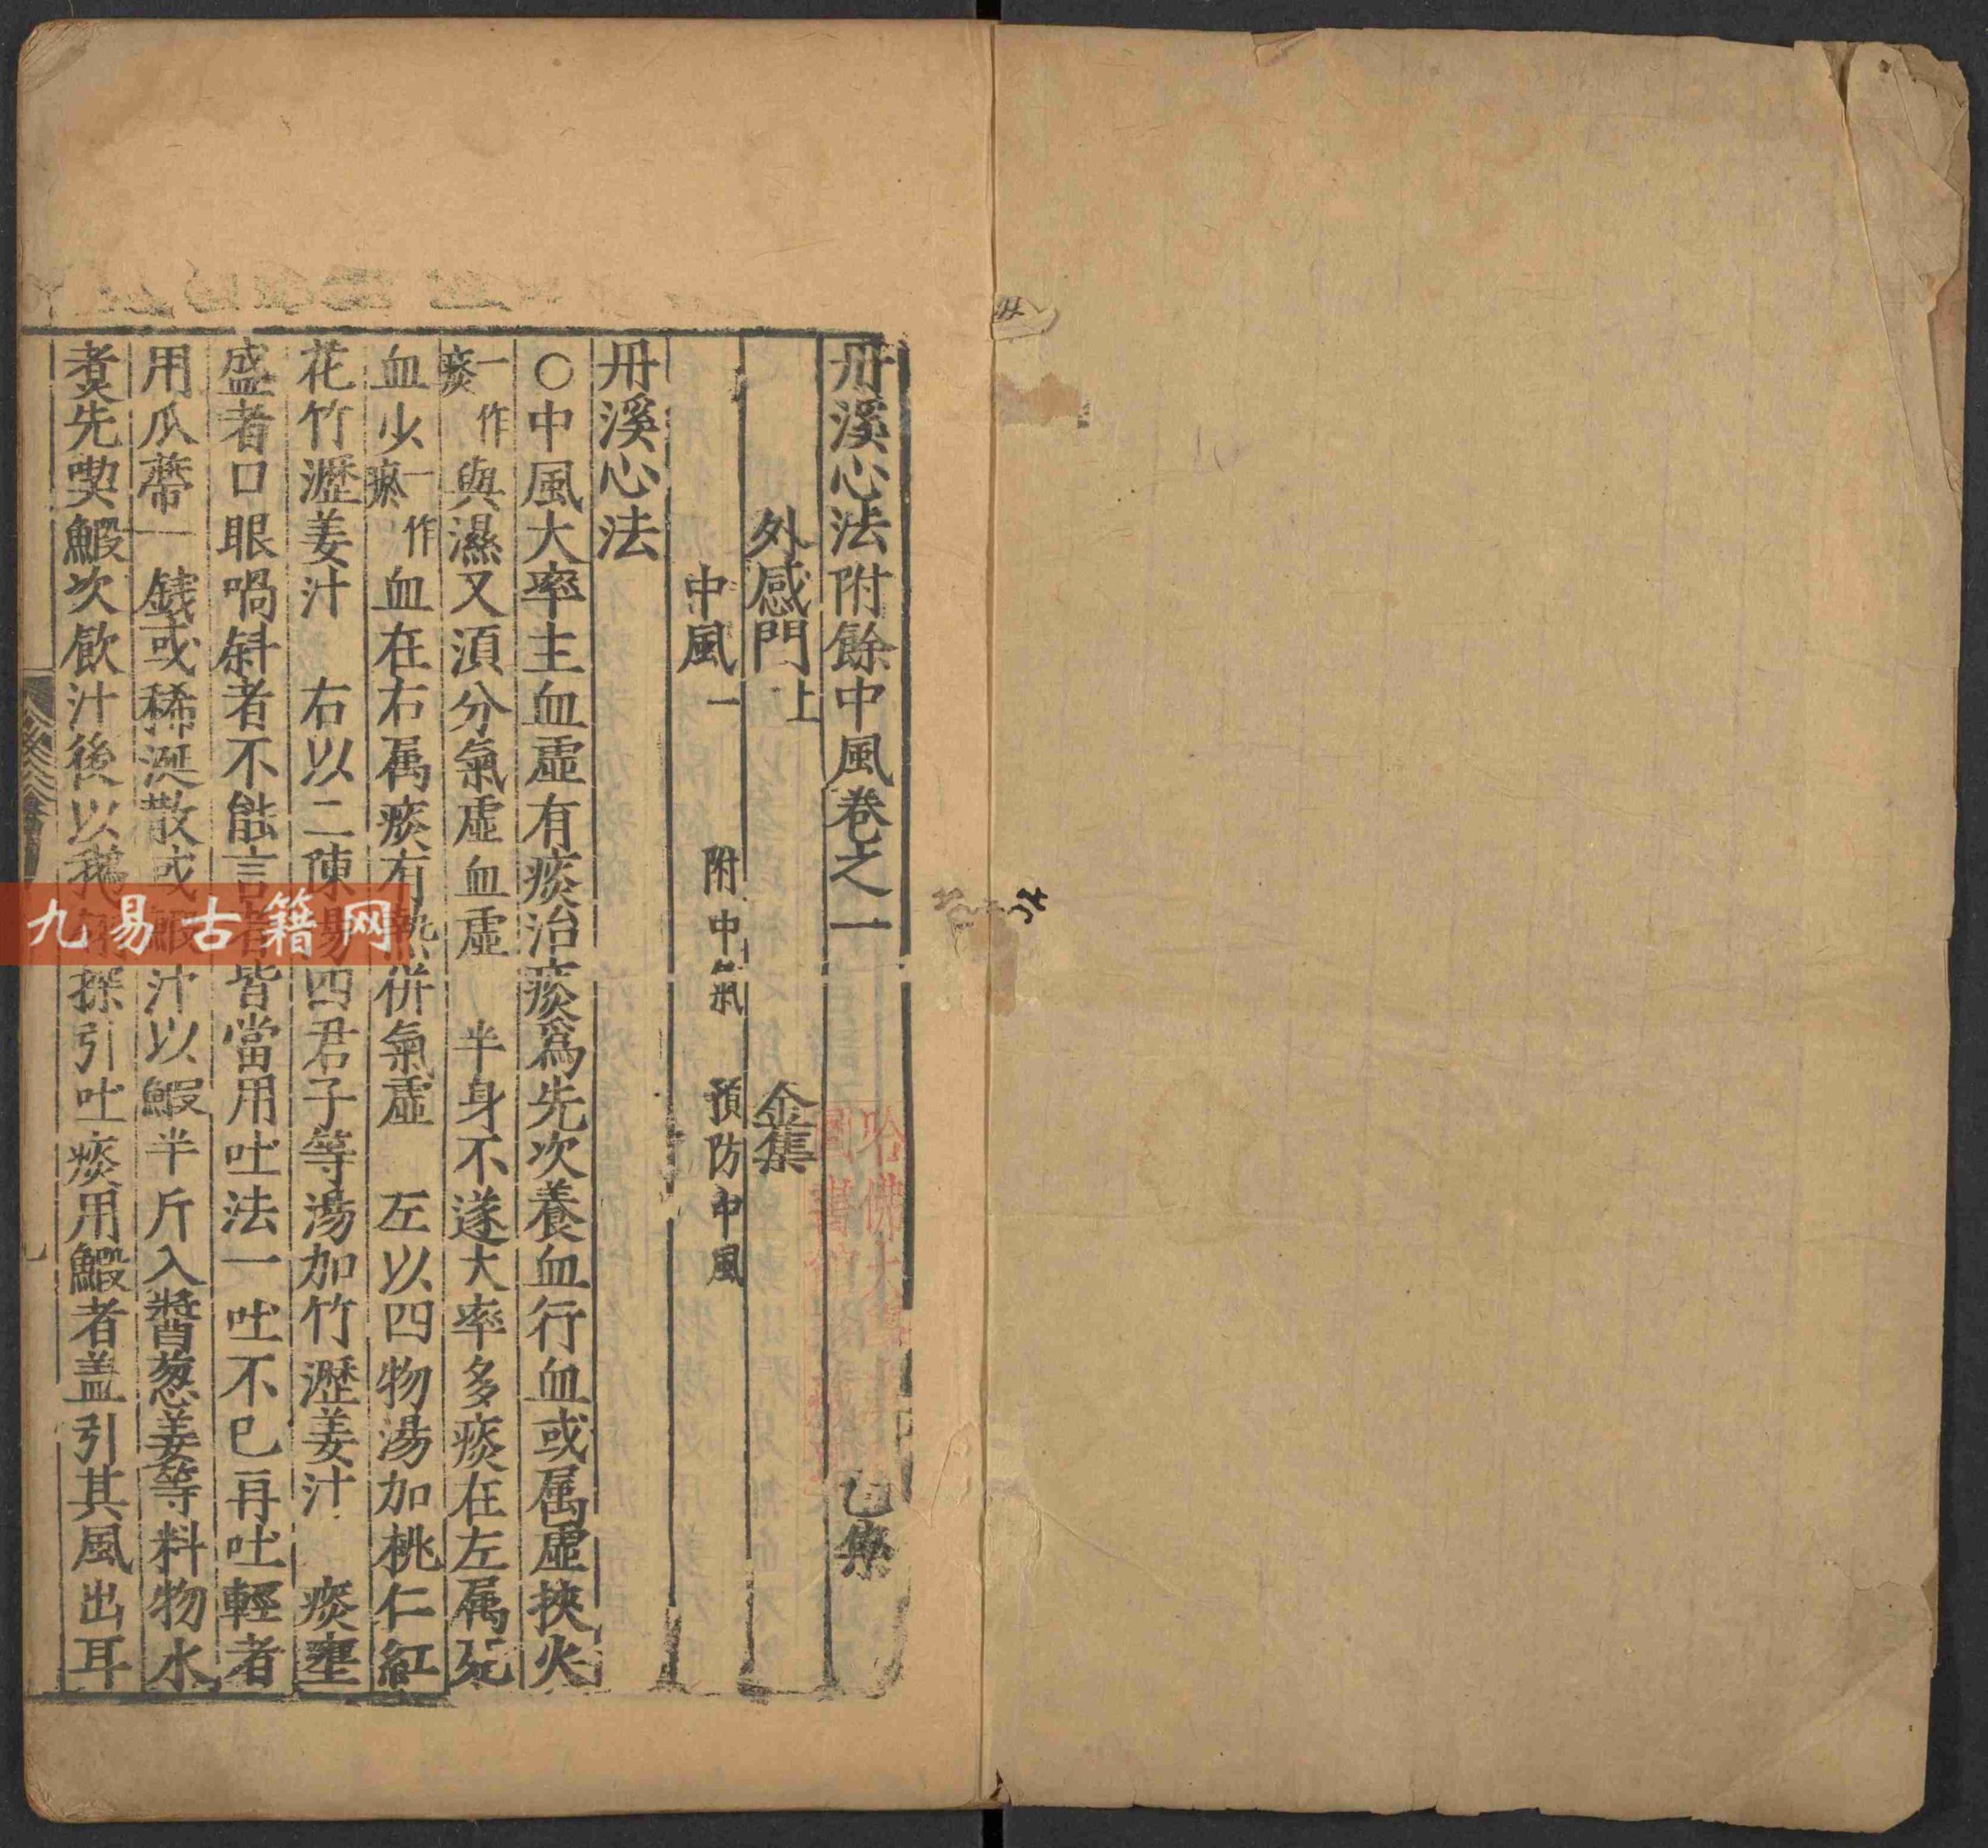 丹溪心法附餘中風卷之一 乙集
外感門上 金集
中風一 附中氣 預防中風
丹溪心法
○中風大率主血虛有痰治痰爲先次養血行血或属虛挾火
一作痰與濕又湏分氣虛血虛 半身不遂大率多痰在左属死
血少一作瘀血在右属痰有熱併氣虛 左以四物湯加桃仁紅
花竹瀝姜汁 右以二陳湯四君子等湯加竹瀝姜汁 痰壅
盛者口眼喎斜者不能言者皆當用吐法一吐不已再吐輕者
用瓜蔕一錢或稀涎散或鰕汁以鰕半斤入醬葱姜等料物水
煑先喫鰕次飲汁後以鵝翎探引吐痰用鰕者盖引其風出耳
九易古籍网
哈佛大學